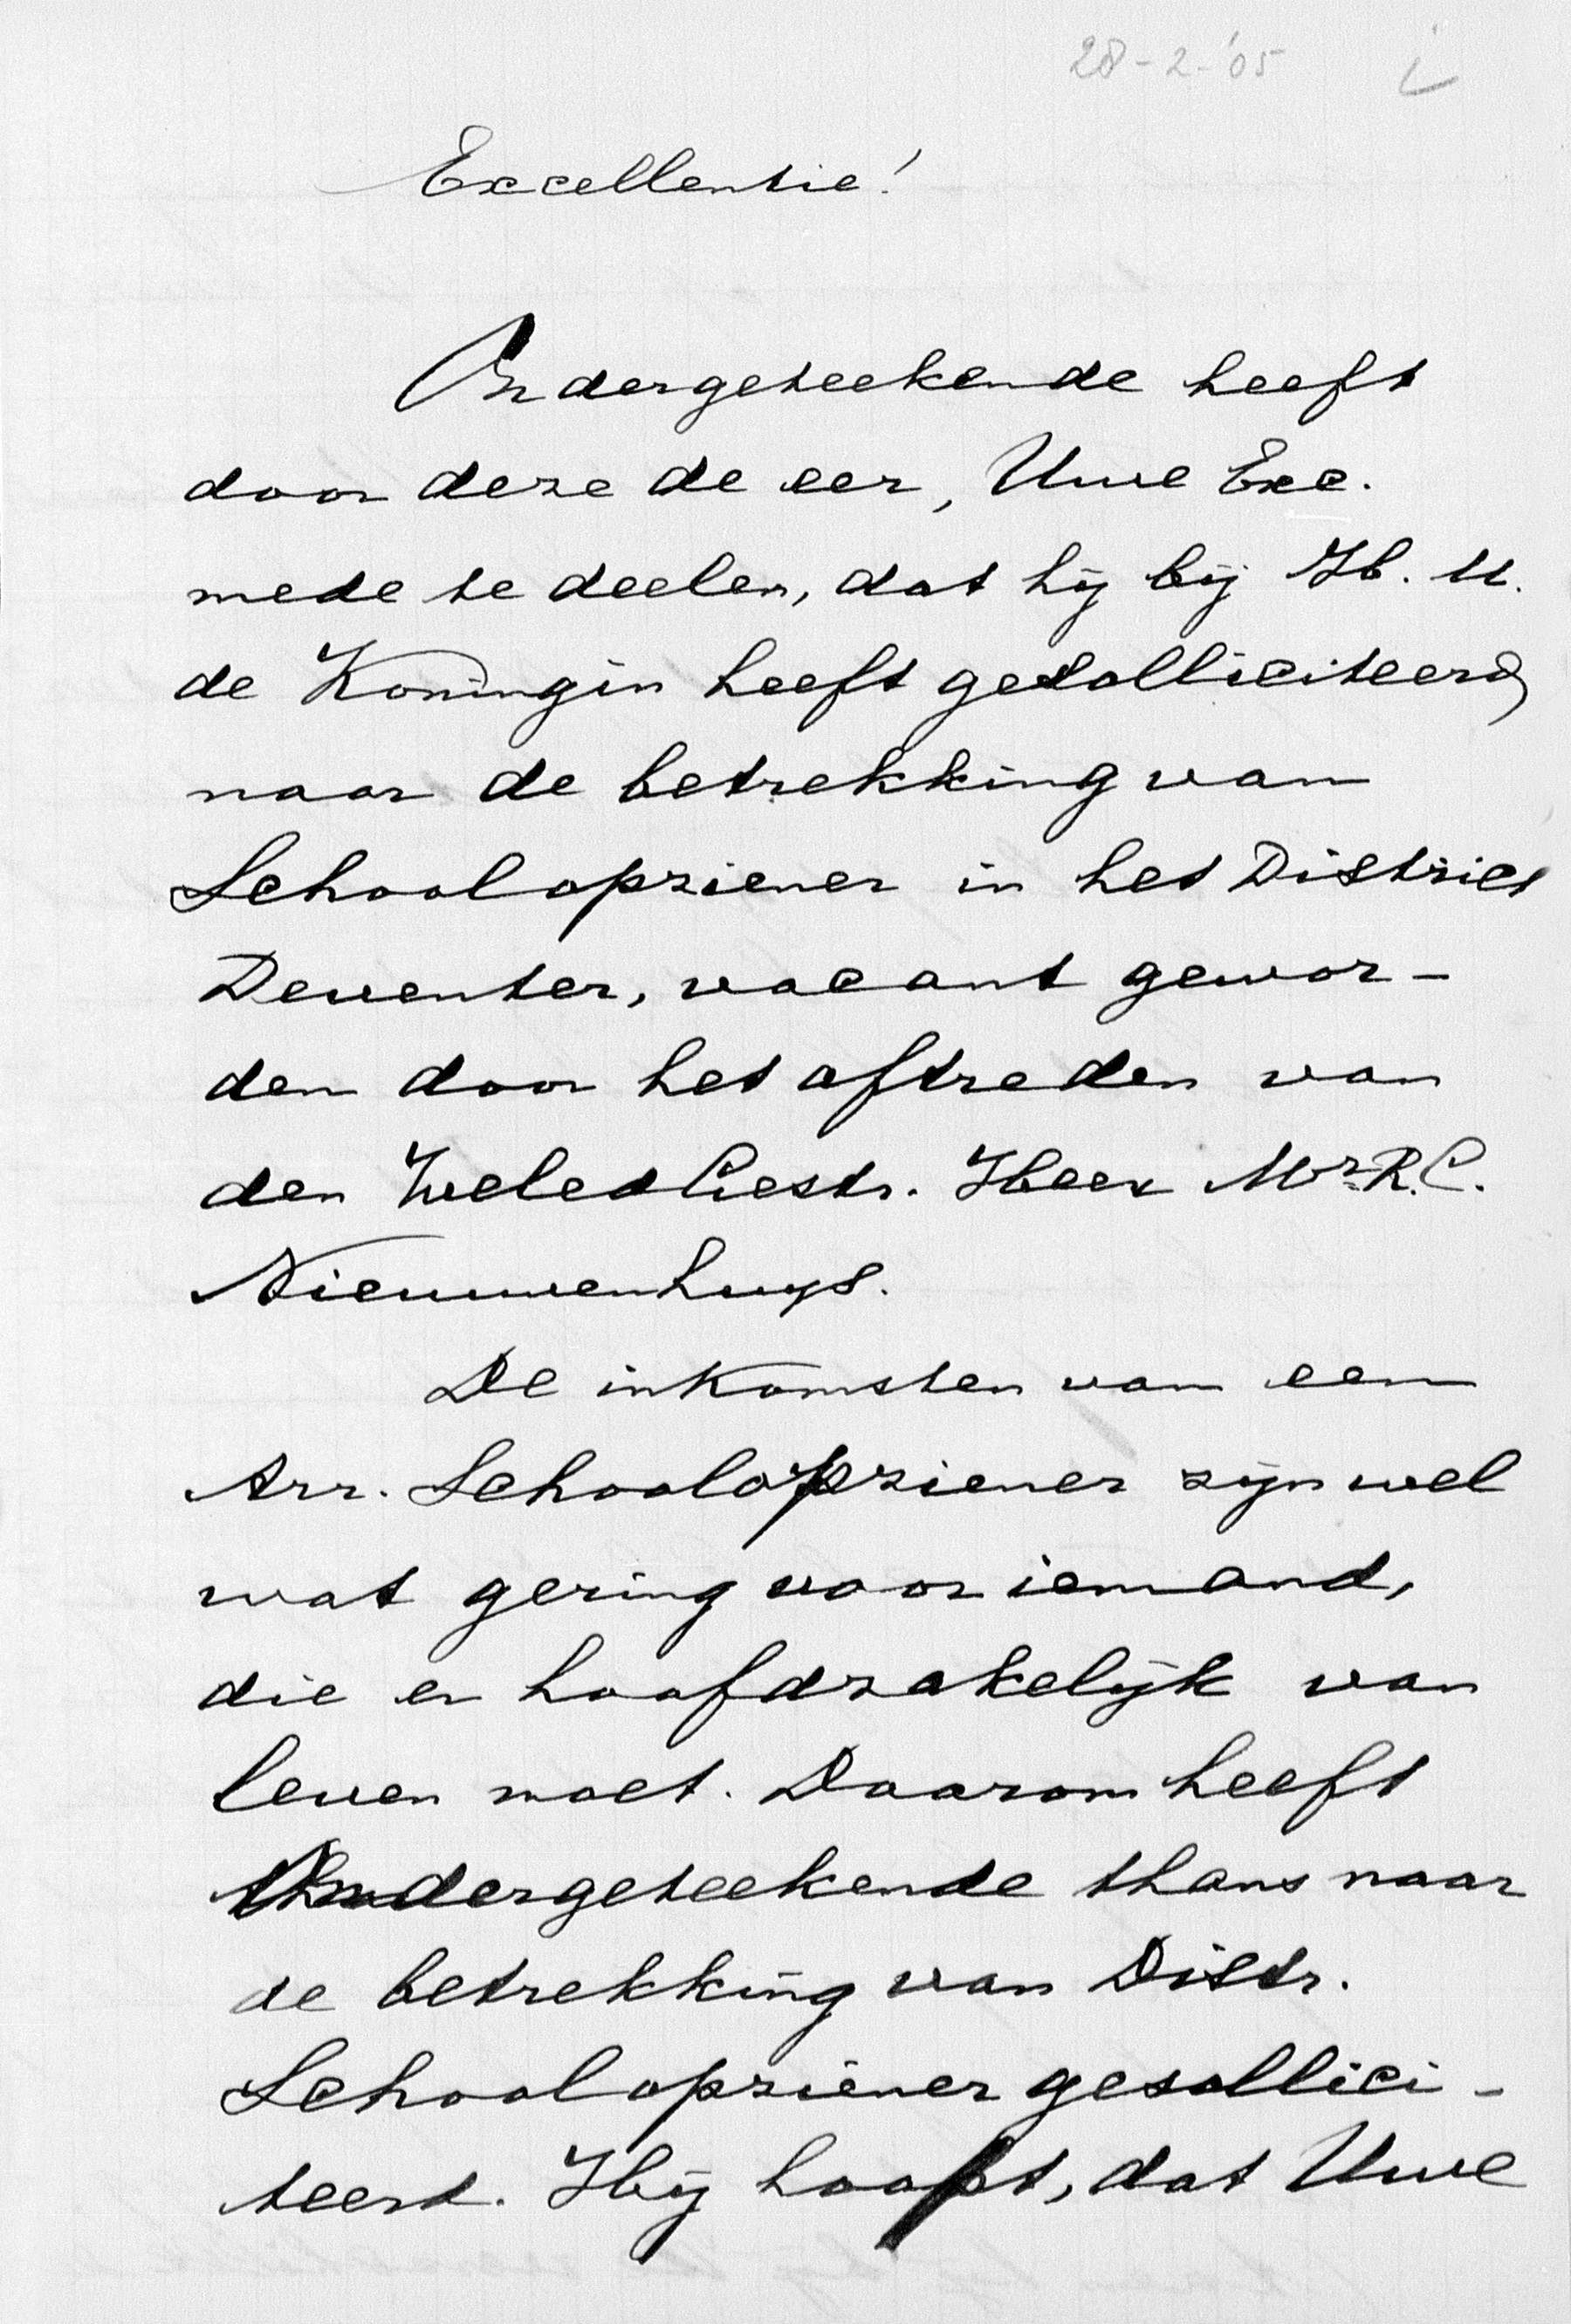 28-2-'05
Excellentie!
Ondergeteekende heeft
door deze de eer, Uwe Exc.
mede te deelen, dat hij bij H. M.
de Koningin heeft gesolliciteerd
naar de betrekking van
Schoolopziener in het District
Deventer, vacant gewor-
den door het aftreden van
den WeledGestr. Heer Mr. R. C.
Nieuwenhuys.
De inkomsten van een
Arr. Schoolopziener zijn wel
wat gering voor iemand,
die er hoofdzakelijk van
leven moet. Daarom heeft
Ondergeteekende thans naar
de betrekking van Distr.
Schoolopziener gesollici-
teerd. Hij hoopt, dat Uwe